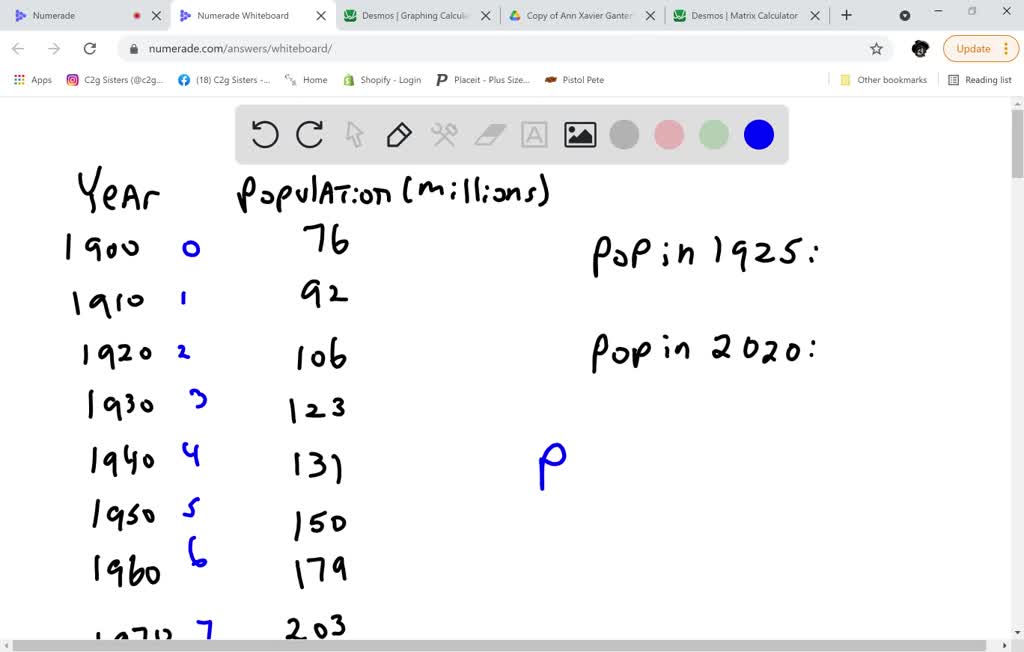 Numerade
Numerade Whiteboard
Desmos | Graphing Calcul
Copy of Ann Xavier Ganter
Desmos | Matrix Calculator
numerade.com/answers/whiteboard/
Update
Apps
C2g Sisters (@c2g...
(18) C2g Sisters -...
Home
Shopify - Login
Placeit - Plus Size...
Pistol Pete
Other bookmarks
Reading list
A
Year Population (millions)
1900 0 76
1910 1 92
1920 2 106
1930 3 123
1940 4 131
1950 5 150
1960 6 179
1970 7 203
Pop in 1925:
Pop in 2020:
P